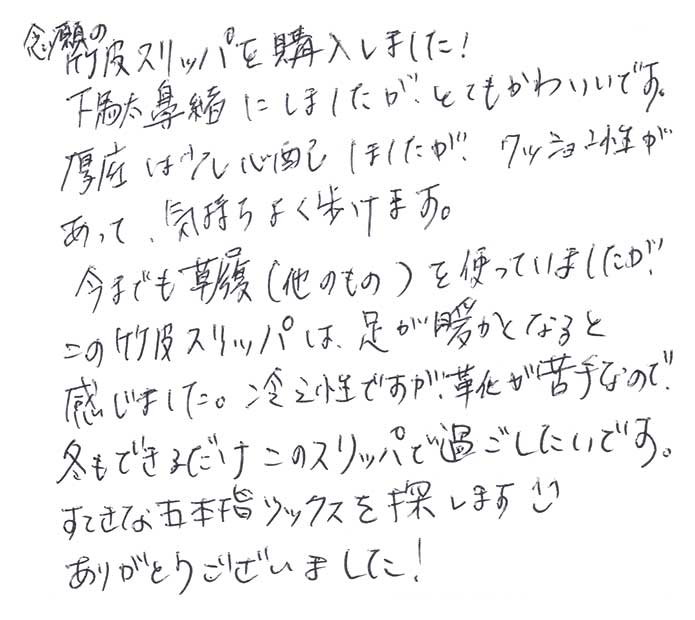 念願の
竹皮スリッパを購入しました!
下駄鼻緒にしましたが、とてもかわいいです。
厚底は少し心配しましたが、クッション性が
あって、気持ちよく歩けます。
今までも草履(他のもの)を使っていましたが、
この竹皮スリッパは、足が暖かくなると
感じました。冷え性ですが、革靴が苦手なので、
冬もできるだけこのスリッパで過ごしたいです。
すてきな五本指ソックスを探します
ありがとうございました!